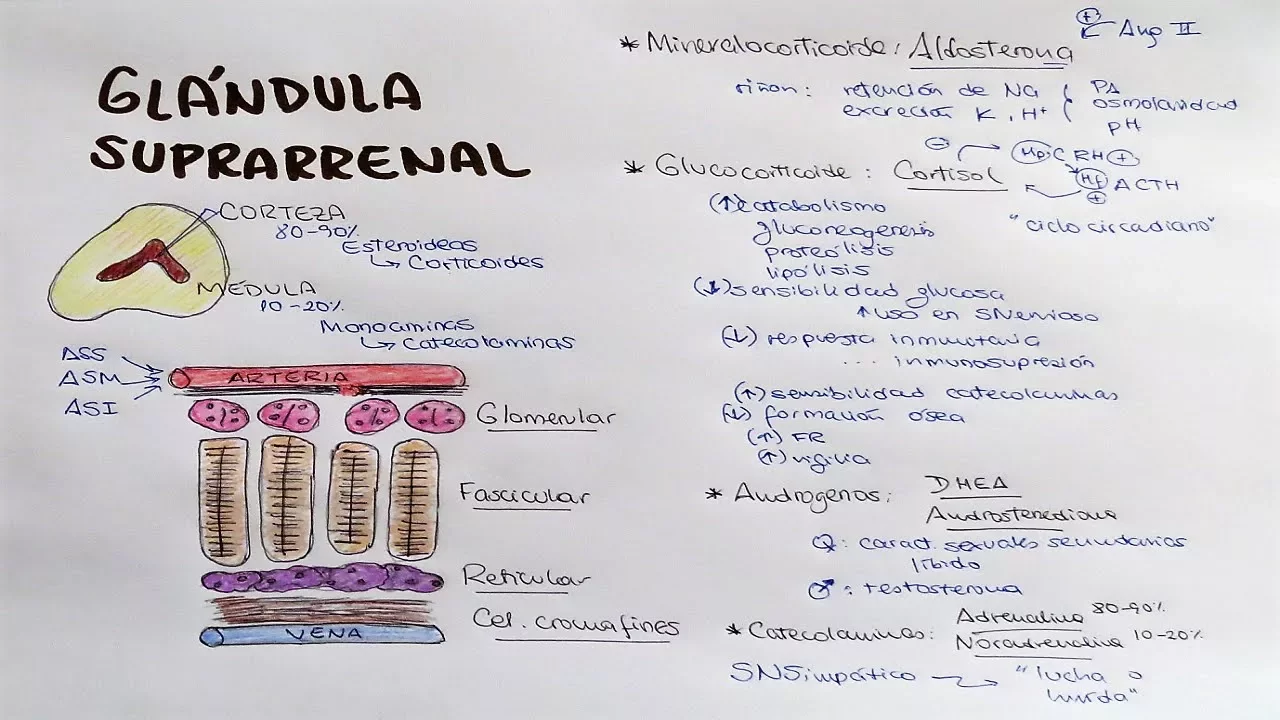 GLÁNDULA
SUPRARRENAL
CORTEZA
80-90%
Esteroideas
↳ Corticoides
MÉDULA
10-20%
Monoaminas
↳ Catecolaminas
ASS
ASM
ASI
ARTERIA
Glomerular
Fascicular
Reticular
Cel. cromafines
VENA
* Mineralocorticoide: Aldosterona (+) Ang II
riñon: retención de Na
excreción K, H+
PA
osmolaridad
pH
* Glucocorticoide: Cortisol
(-) CRH (+)
ACTH
(+)
"ciclo circadiano"
(↑) catabolismo
gluconeogenesis
proteólisis
lipólisis
(↓) sensibilidad glucosa
↑ uso en SNervioso
(↓) respuesta inmunitaria
... inmunosupresión
(↑) sensibilidad catecolaminas
(↓) formación ósea
(↑) FR
(↑) vigilia
* Andrógenos: DHEA
Androstenediona
♀: caract. sexuales secundarios
líbido
♂: testosterona
* Catecolaminas: Adrenalina 80-90%
Noradrenalina 10-20%
SNSimpático → "lucha o
huida"